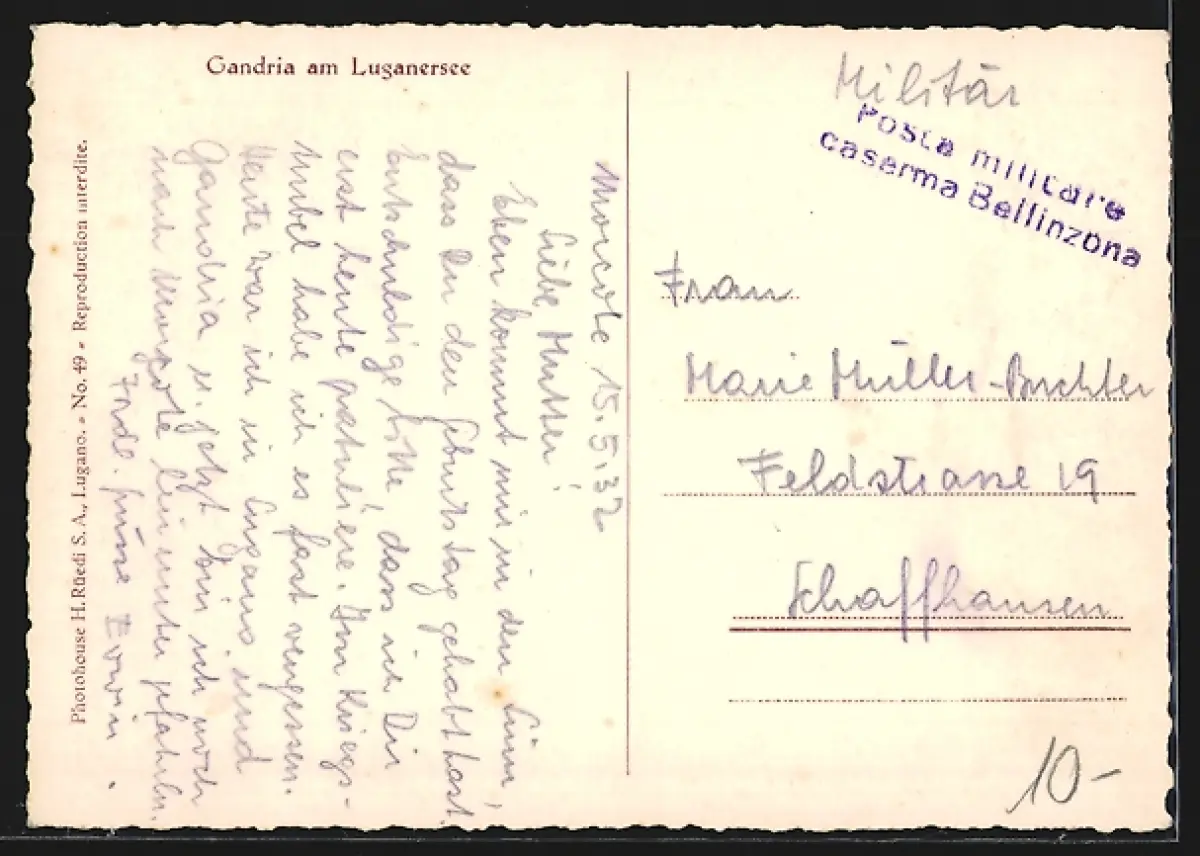 Gandria am Luganersee
Photohouse H. Rüedi S. A., Lugano. - No. 49 - Reproduction interdite.
Morcote 15.5.32
Liebe Mutter!
Eben kommt mir in den Sinn,
dass Du den Geburtstag gehabt hast.
Entschuldige bitte, dass ich Dir
erst heute gratuliere. Im Kriegs-
trubel habe ich es fast vergessen.
Heute war ich in Lugano und
Gandria u. jetzt bin ich noch
nach Morcote hinunter gefahren.
Frdl. Grüsse Erwin.
Militär
Posta militare
caserma Bellinzona
Frau
Marie Müller-Buchter
Feldstrasse 19
Schaffhausen
10-